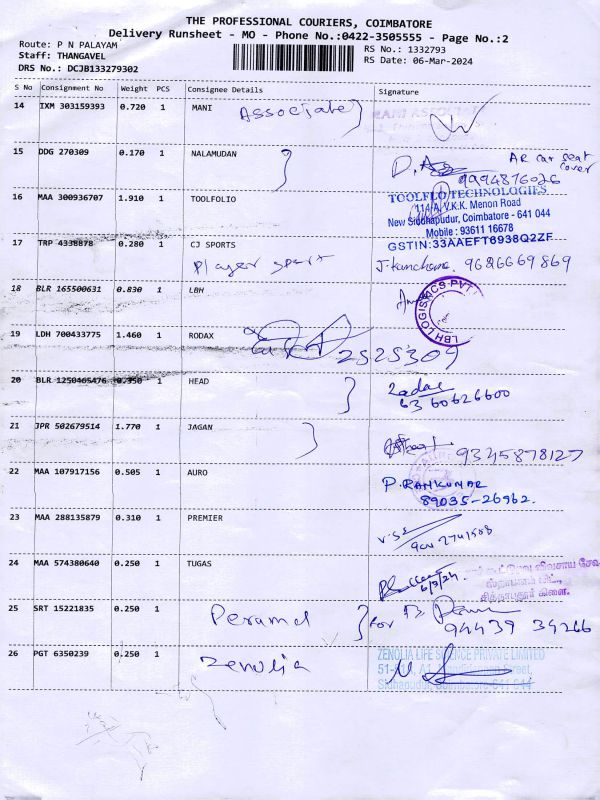 THE PROFESSIONAL COURIERS, COIMBATORE
Delivery Runsheet - MO - Phone No.:0422-3505555 - Page No.:2
Route: P N PALAYAM
RS No.: 1332793
Staff: THANGAVEL
RS Date: 06-Mar-2024
DRS No.: DCJB133279302
S No Consignment No Weight PCS Consignee Details Signature
14 IXM 303159393 0.720 1 MANI Associate
15 DDG 270309 0.170 1 NALAMUDAN
AR car seat cover
9994876026
16 MAA 300936707 1.910 1 TOOLFOLIO
TOOLFLO TECHNOLOGIES
114/A, V.K.K. Menon Road
New Siddhapudur, Coimbatore - 641 044
Mobile : 93611 16678
GSTIN:33AAEFT6938Q2ZF
17 TRP 4338878 0.280 1 CJ SPORTS
Player sport
9626669869
18 BLR 165500631 0.830 1 LBH
LBH LOGISTICS PVT
19 LDH 700433775 1.460 1 RODAX
2525309
20 BLR 1250465476 0.350 1 HEAD
63 60626600
21 JPR 502679514 1.770 1 JAGAN
9345878127
22 MAA 107917156 0.505 1 AURO
P. RAMKUMAR
89035-26962.
23 MAA 288135879 0.310 1 PREMIER
24 MAA 574380640 0.250 1 TUGAS
6/3/24
25 SRT 15221835 0.250 1 Peramal
for
94439 34266
26 PGT 6350239 0.250 1 Zenolia
ZENOLIA LIFE SCIENCE PRIVATE LIMITED
Coimbatore-641 044